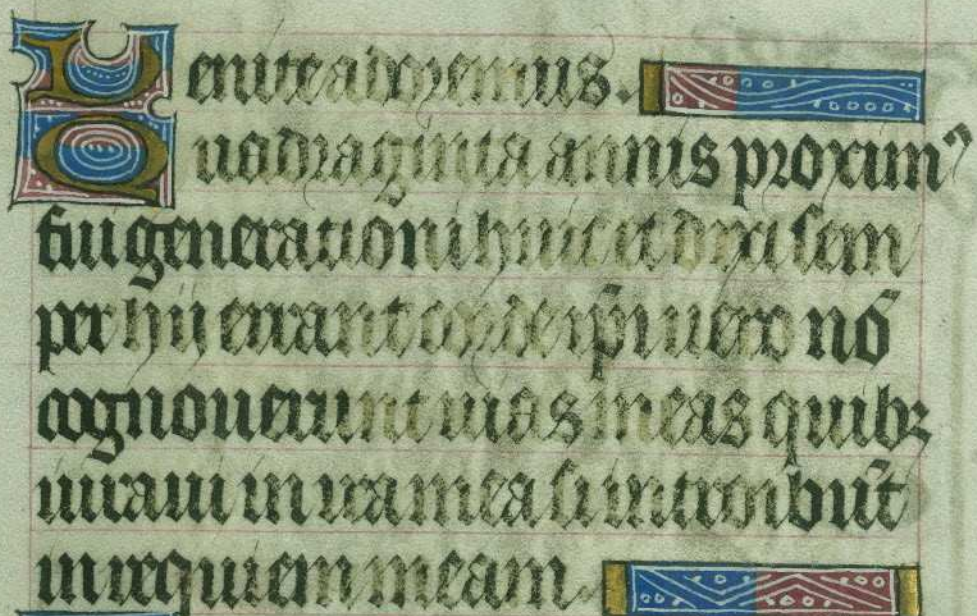 Venite adoremus.
Quadraginta annis proximꝰ
fui generationi huic et dixi sem
per hii errant corde ip̄i vero nō
cognoverunt vias meas quibꝫ
iuravi in ira mea si introibūt
in requiem meam.